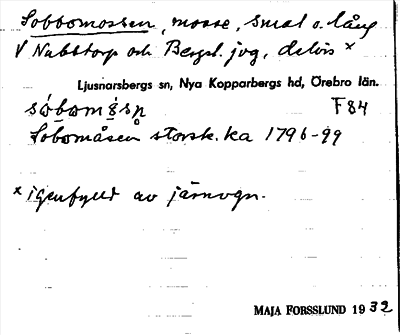 Sobbomossen, mosse, smal o. lång
V Nabbtorp och Bergsl. jvg, delvis x
Ljusnarsbergs sn, Nya Kopparbergs hd, Örebro län.
F84
Sobomåsen storsk. ka 1796-99
x igenfylld av järnvgn.
MAJA FORSSLUND 1932